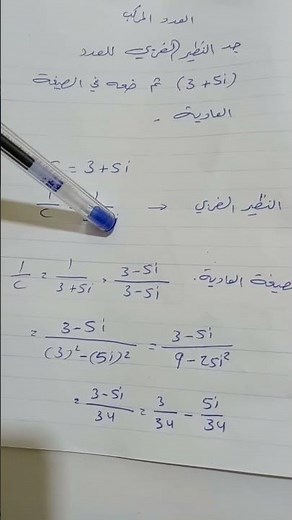 العدد المركب
جد النظير الضربي للعدد
(3+5i) ثم ضعه في الصيغة
العادية -
= 3+5i
النظير الضربي → 1/c 1
الصيغة العادية. 1/c = 1/(3+5i) · (3-5i)/(3-5i)
= (3-5i)/((3)²-(5i)²) = (3-5i)/(9-25i²)
= (3-5i)/34 = 3/34 - 5i/34